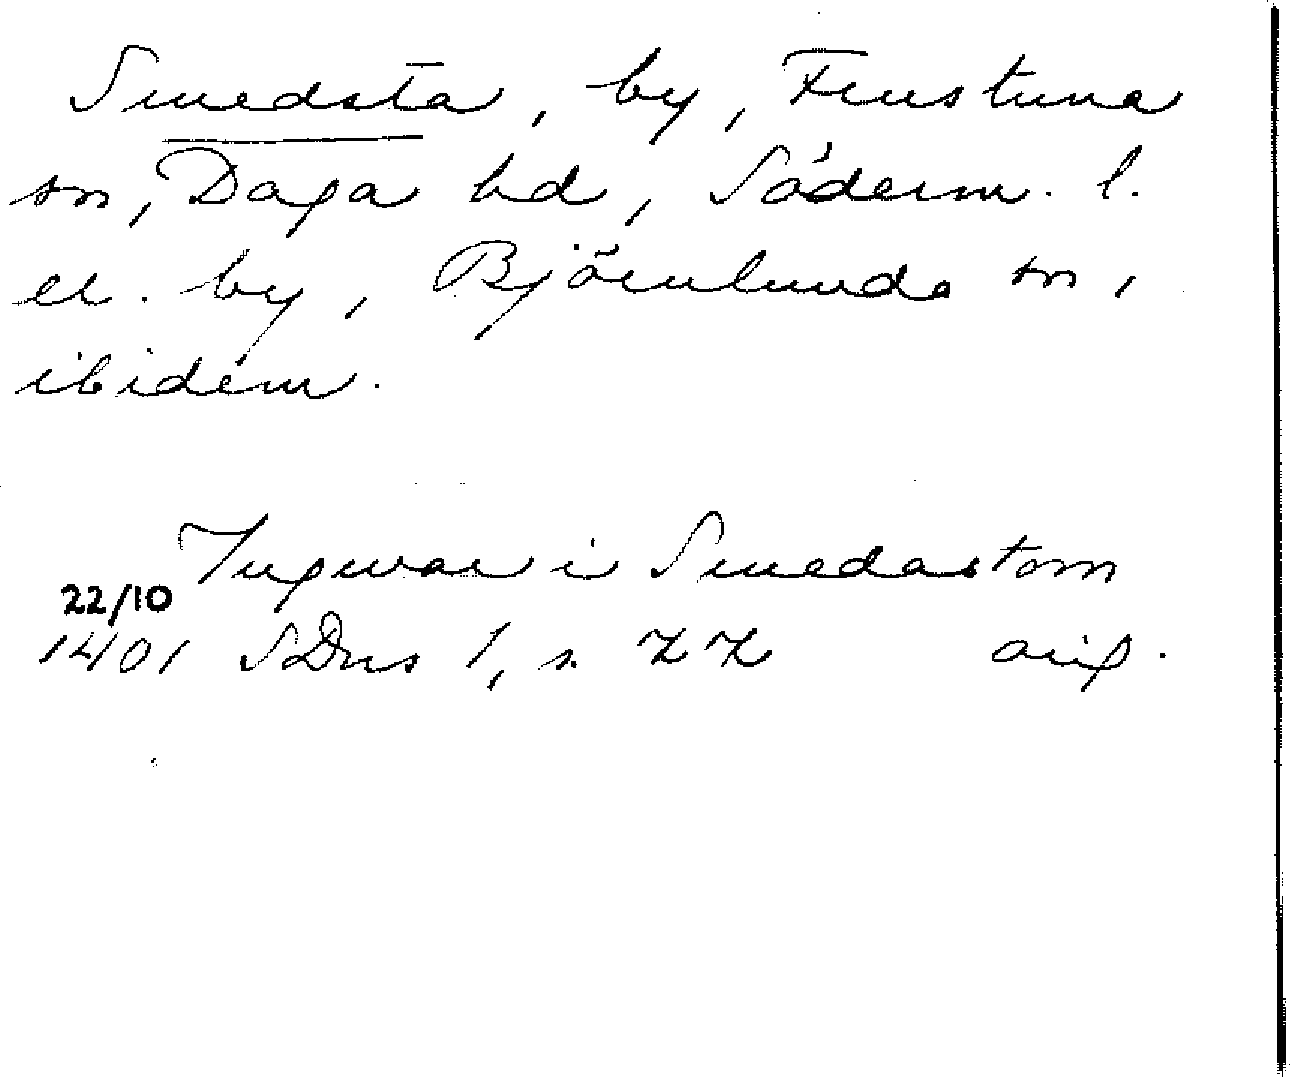 Smedsta, by, Frustuna
sn, Daga hd, Söderm. l.
el. by, Björnlunda sn,
ibidem.
Ingwar i Smedastom
22/10
1401 SDns 1, s. 22 orig.